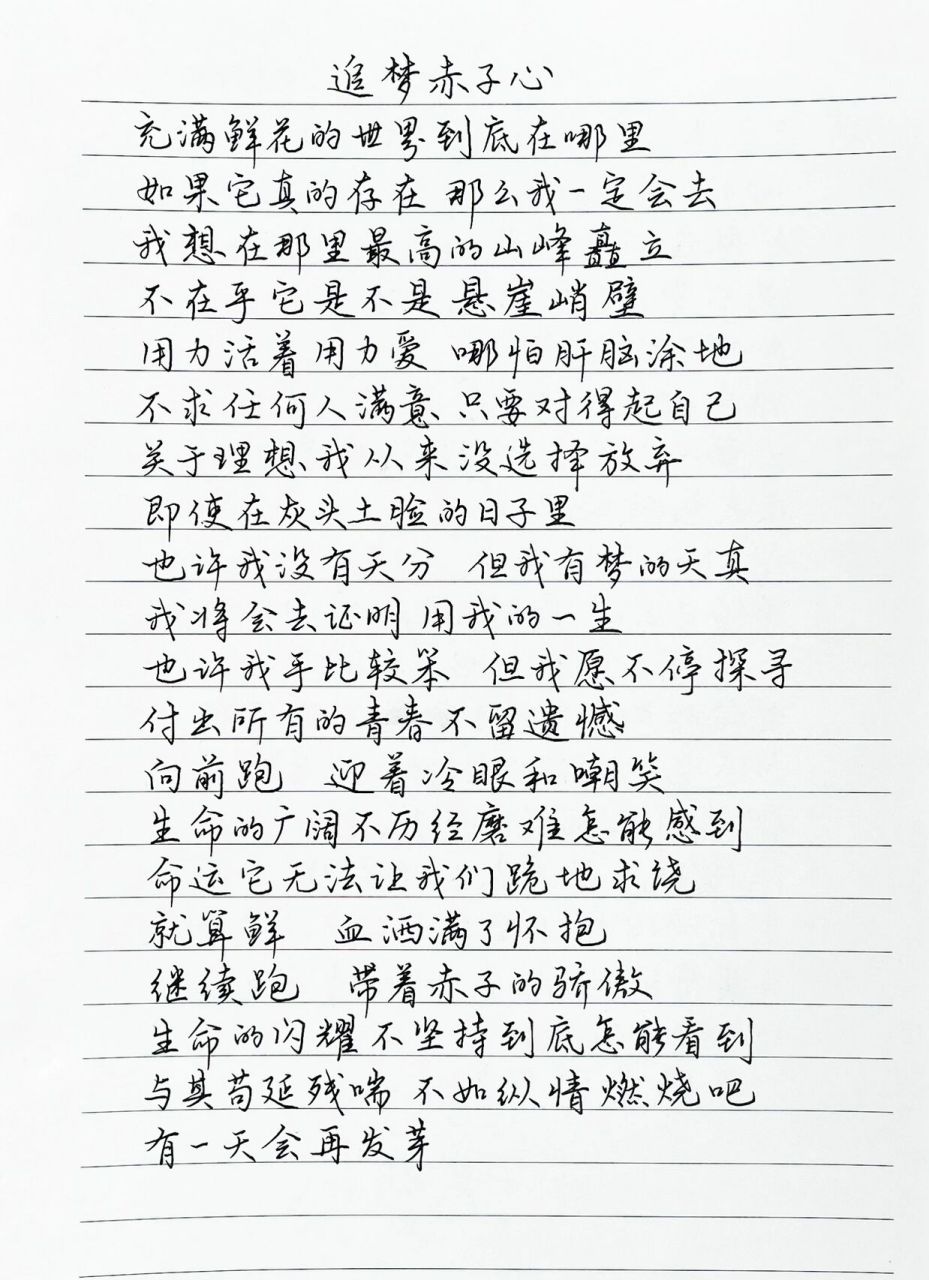 追梦赤子心
充满鲜花的世界到底在哪里
如果它真的存在 那么我一定会去
我想在那里最高的山峰矗立
不在乎它是不是悬崖峭壁
用力活着用力爱 哪怕肝脑涂地
不求任何人满意 只要对得起自己
关于理想我从来没选择放弃
即使在灰头土脸的日子里
也许我没有天分 但我有梦的天真
我将会去证明 用我的一生
也许我手比较笨 但我愿不停探寻
付出所有的青春不留遗憾
向前跑 迎着冷眼和嘲笑
生命的广阔不历经磨难怎能感到
命运它无法让我们跪地求绕
就算鲜 血洒满了怀抱
继续跑 带着赤子的骄傲
生命的闪耀不坚持到底怎能看到
与其苟延残喘 不如纵情燃烧吧
有一天会再发芽